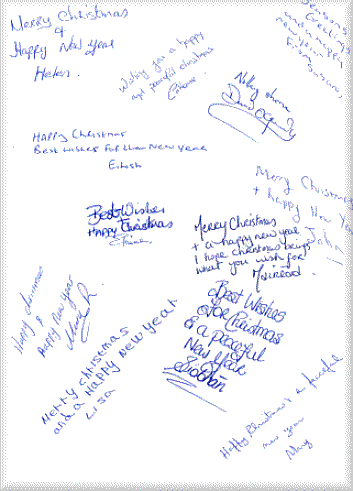 Merry Christmas
&
Happy New Year
Helen.
Wishing you a happy
and peaceful christmas
Seasons
Greetings
Happy Christmas
Best wishes for the New Year
Eilish
Merry Christmas
+ happy New Year
Best Wishes
Happy Christmas
Merry Christmas
+ a happy new year
I hope christmas brings
what you wish for
Mairead.
Best Wishes
for Christmas
& a peaceful
New Year
Siobhán
Happy
&
Happy New Year
Merry christmas
and a Happy New Year
Lisa
Happy Christmas & a peaceful
new year
Mary